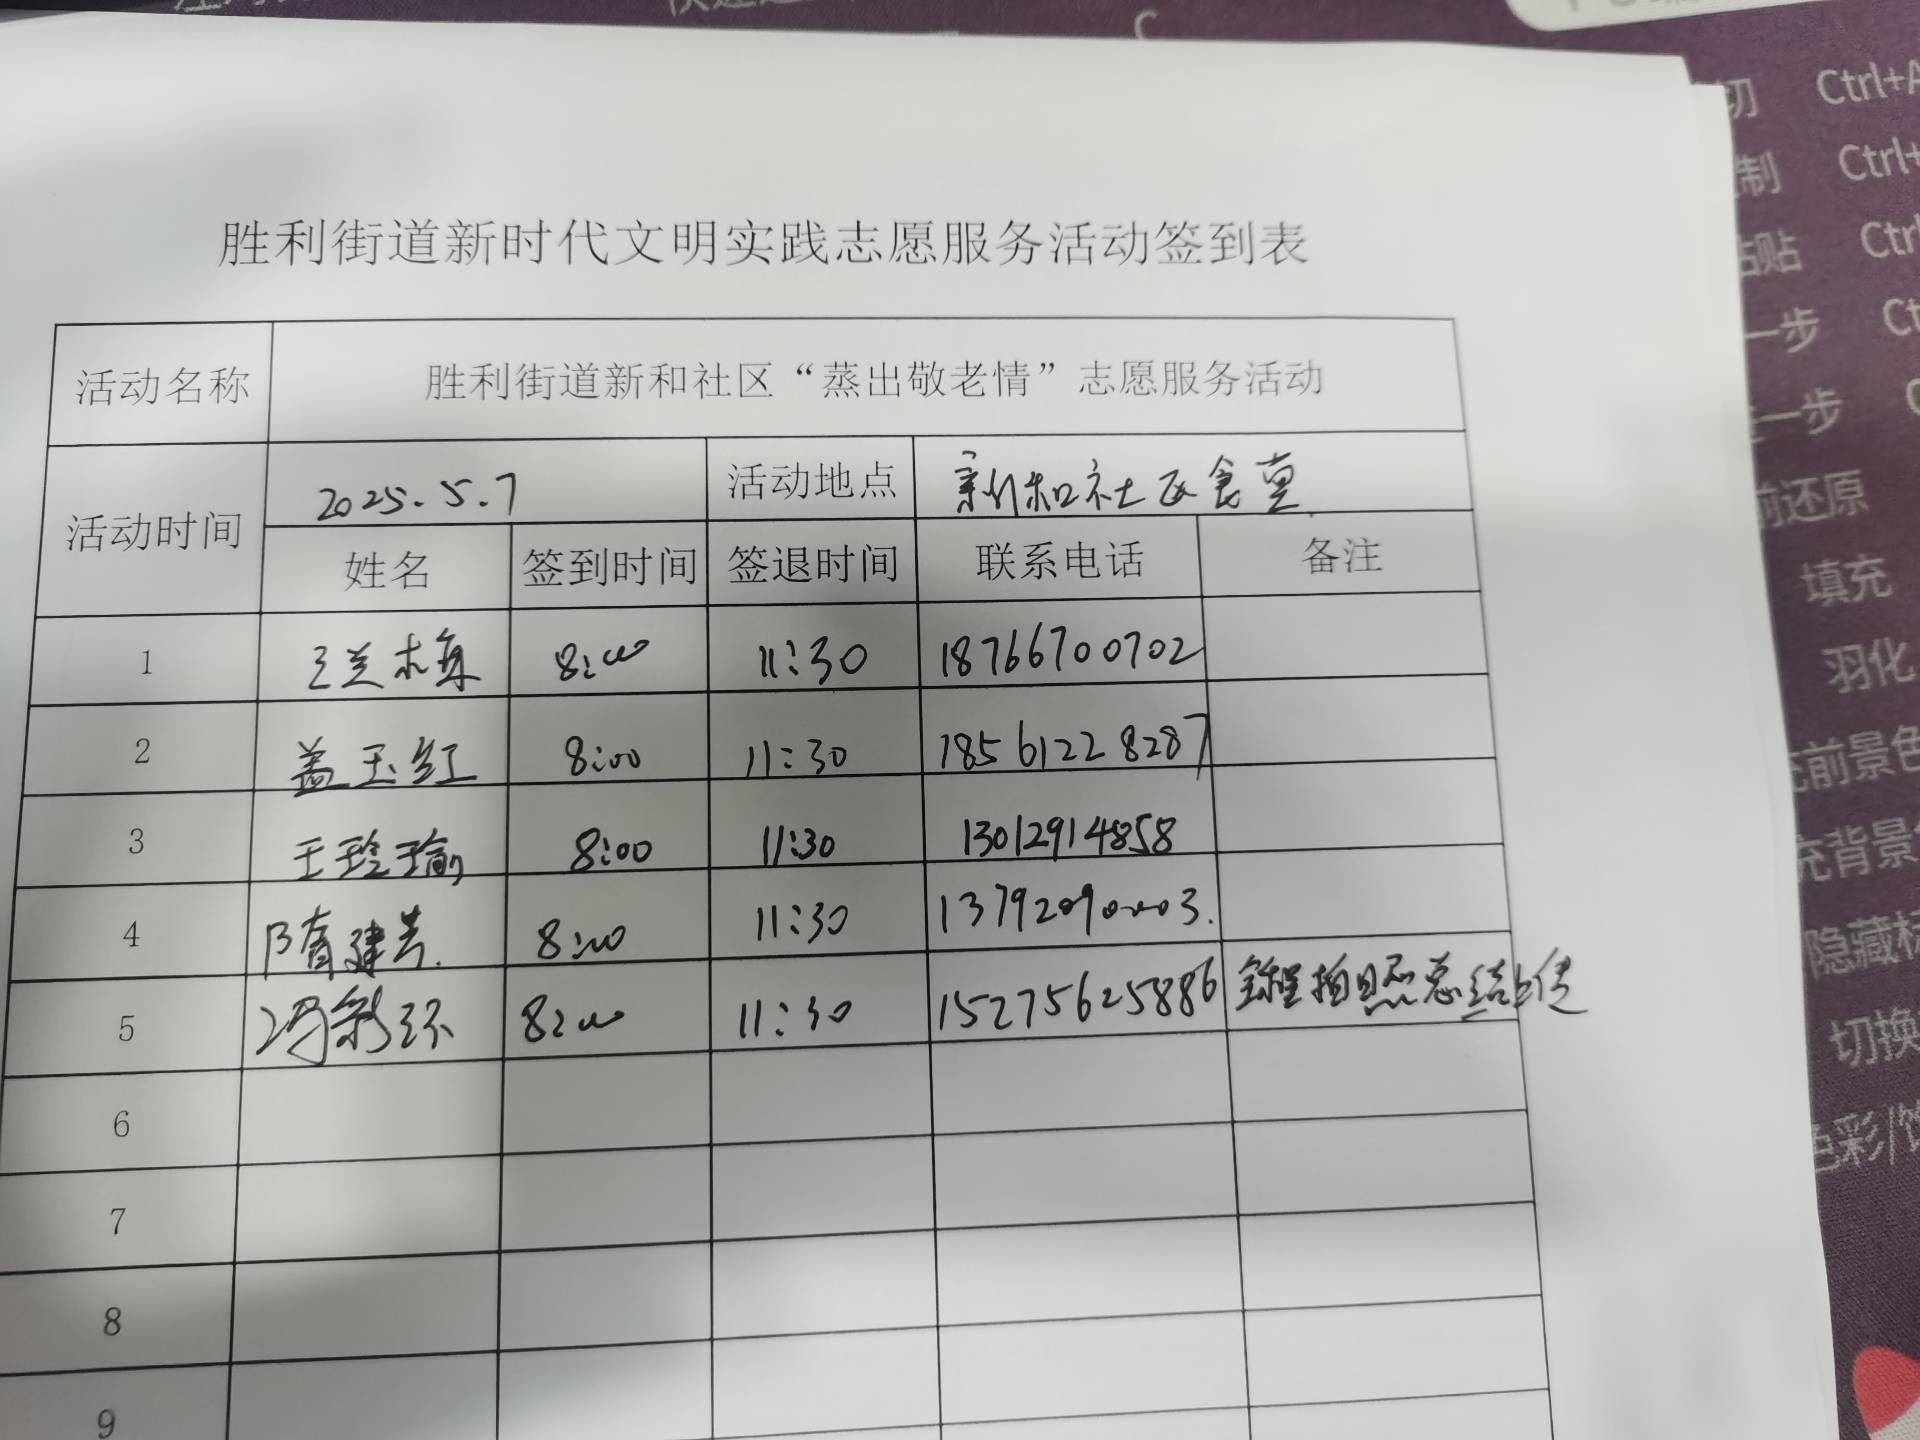 切 Ctrl+
制 Ctrl+
粘贴 Ctrl
一步 Ct
一步
前还原
填充
羽化
充前景色
充背景
隐藏标
切换
色彩/饱
胜利街道新时代文明实践志愿服务活动签到表
活动名称 胜利街道新和社区“蒸出敬老情”志愿服务活动
活动时间 2025.5.7 活动地点 新和社区食堂
姓名 签到时间 签退时间 联系电话 备注
1 王兰梅 8:00 11:30 18766700702
2 盖玉红 8:00 11:30 18561228287
3 王玲瑜 8:00 11:30 13012914858
4 隋建芳 8:00 11:30 13792090003.
5 冯彩环 8:00 11:30 15275625886 全程拍照总结上传
6
7
8
9